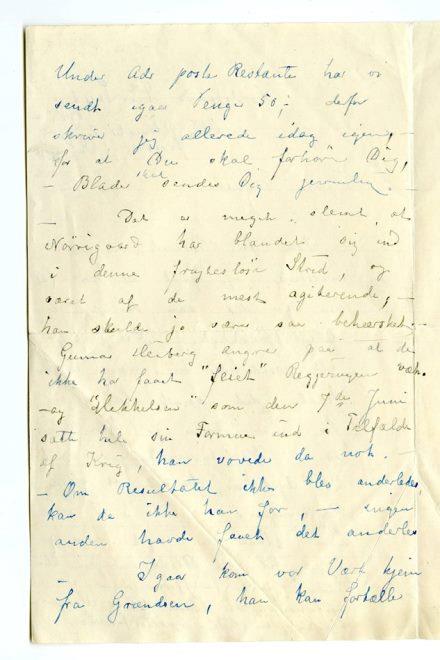 Under Adr poste Restante har vi
sendt igaar Penger 50,- defor
skriver jeg allerede idag igen,-
for at Du skal forhøre Dig,
- Blade skal sendes Dig jevnlig. -
- Det er meget slemt at
Nörregaard har blandet sig ind
i denne frugtesløse Strid, og
været af de mest agiterende, -
han skulde jo være saa behersket. -
Gunnar Heiberg angrer paa at de
ikke har faaet "feiet" Regjeringen væk.
- og som den 7de Juni
satte hele sin Formue ind i Tilfælde
af Krig, han vovede da nok. -
- Om Resultatet ikke blev anderledes,
kan de ikke han for, - ingen
anden havde faaet det anderles
- Igaar kom vor Vært hjem
fra Grændsen, han kan fortælle